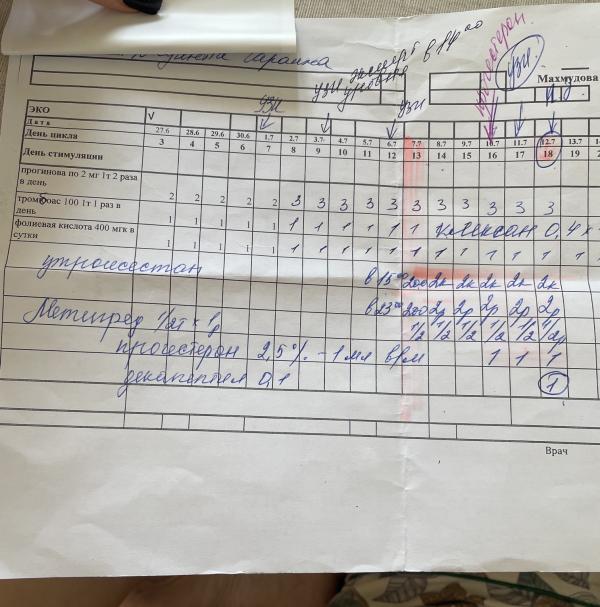 УЗИ в 14 00
прогестерон
УЗИ
УЗИ
УЗИ
Махмудова
ЭКО V
Дата 27.6 28.6 29.6 30.6 1.7 2.7 3.7 4.7 5.7 6.7 7.7 10.7 11.7 12.7 13.7
День цикла 3 4 5 6 7 8 9 10 11 12 13 14 15 16 17 18 19
День стимуляции
прогинова по 2 мг 1т 2 раза в день 2 2 2 2 2 3 3 3 3 3 3 3 3 3 3 3
тромбоас 100 1т 1 раз в день 1 1 1 1 1 1 1 1 1 1 1 клексан 0,4
фолиевая кислота 400 мкг в сутки 1 1 1 1 1 1 1 1 1 1 1 1 1 1 1 1 1
утрожестан в 15 00 200 2к 2к 2к 2к 2к
в 23 00 200 2р 2р 2р 2р 2р
Метипред 1/2т х 1р 1/2 1/2 1/2 1/2 1/2 1/2
прогестерон 2,5% - 1 мл в/м 1 1 1
декапептил 0,1 1
Врач